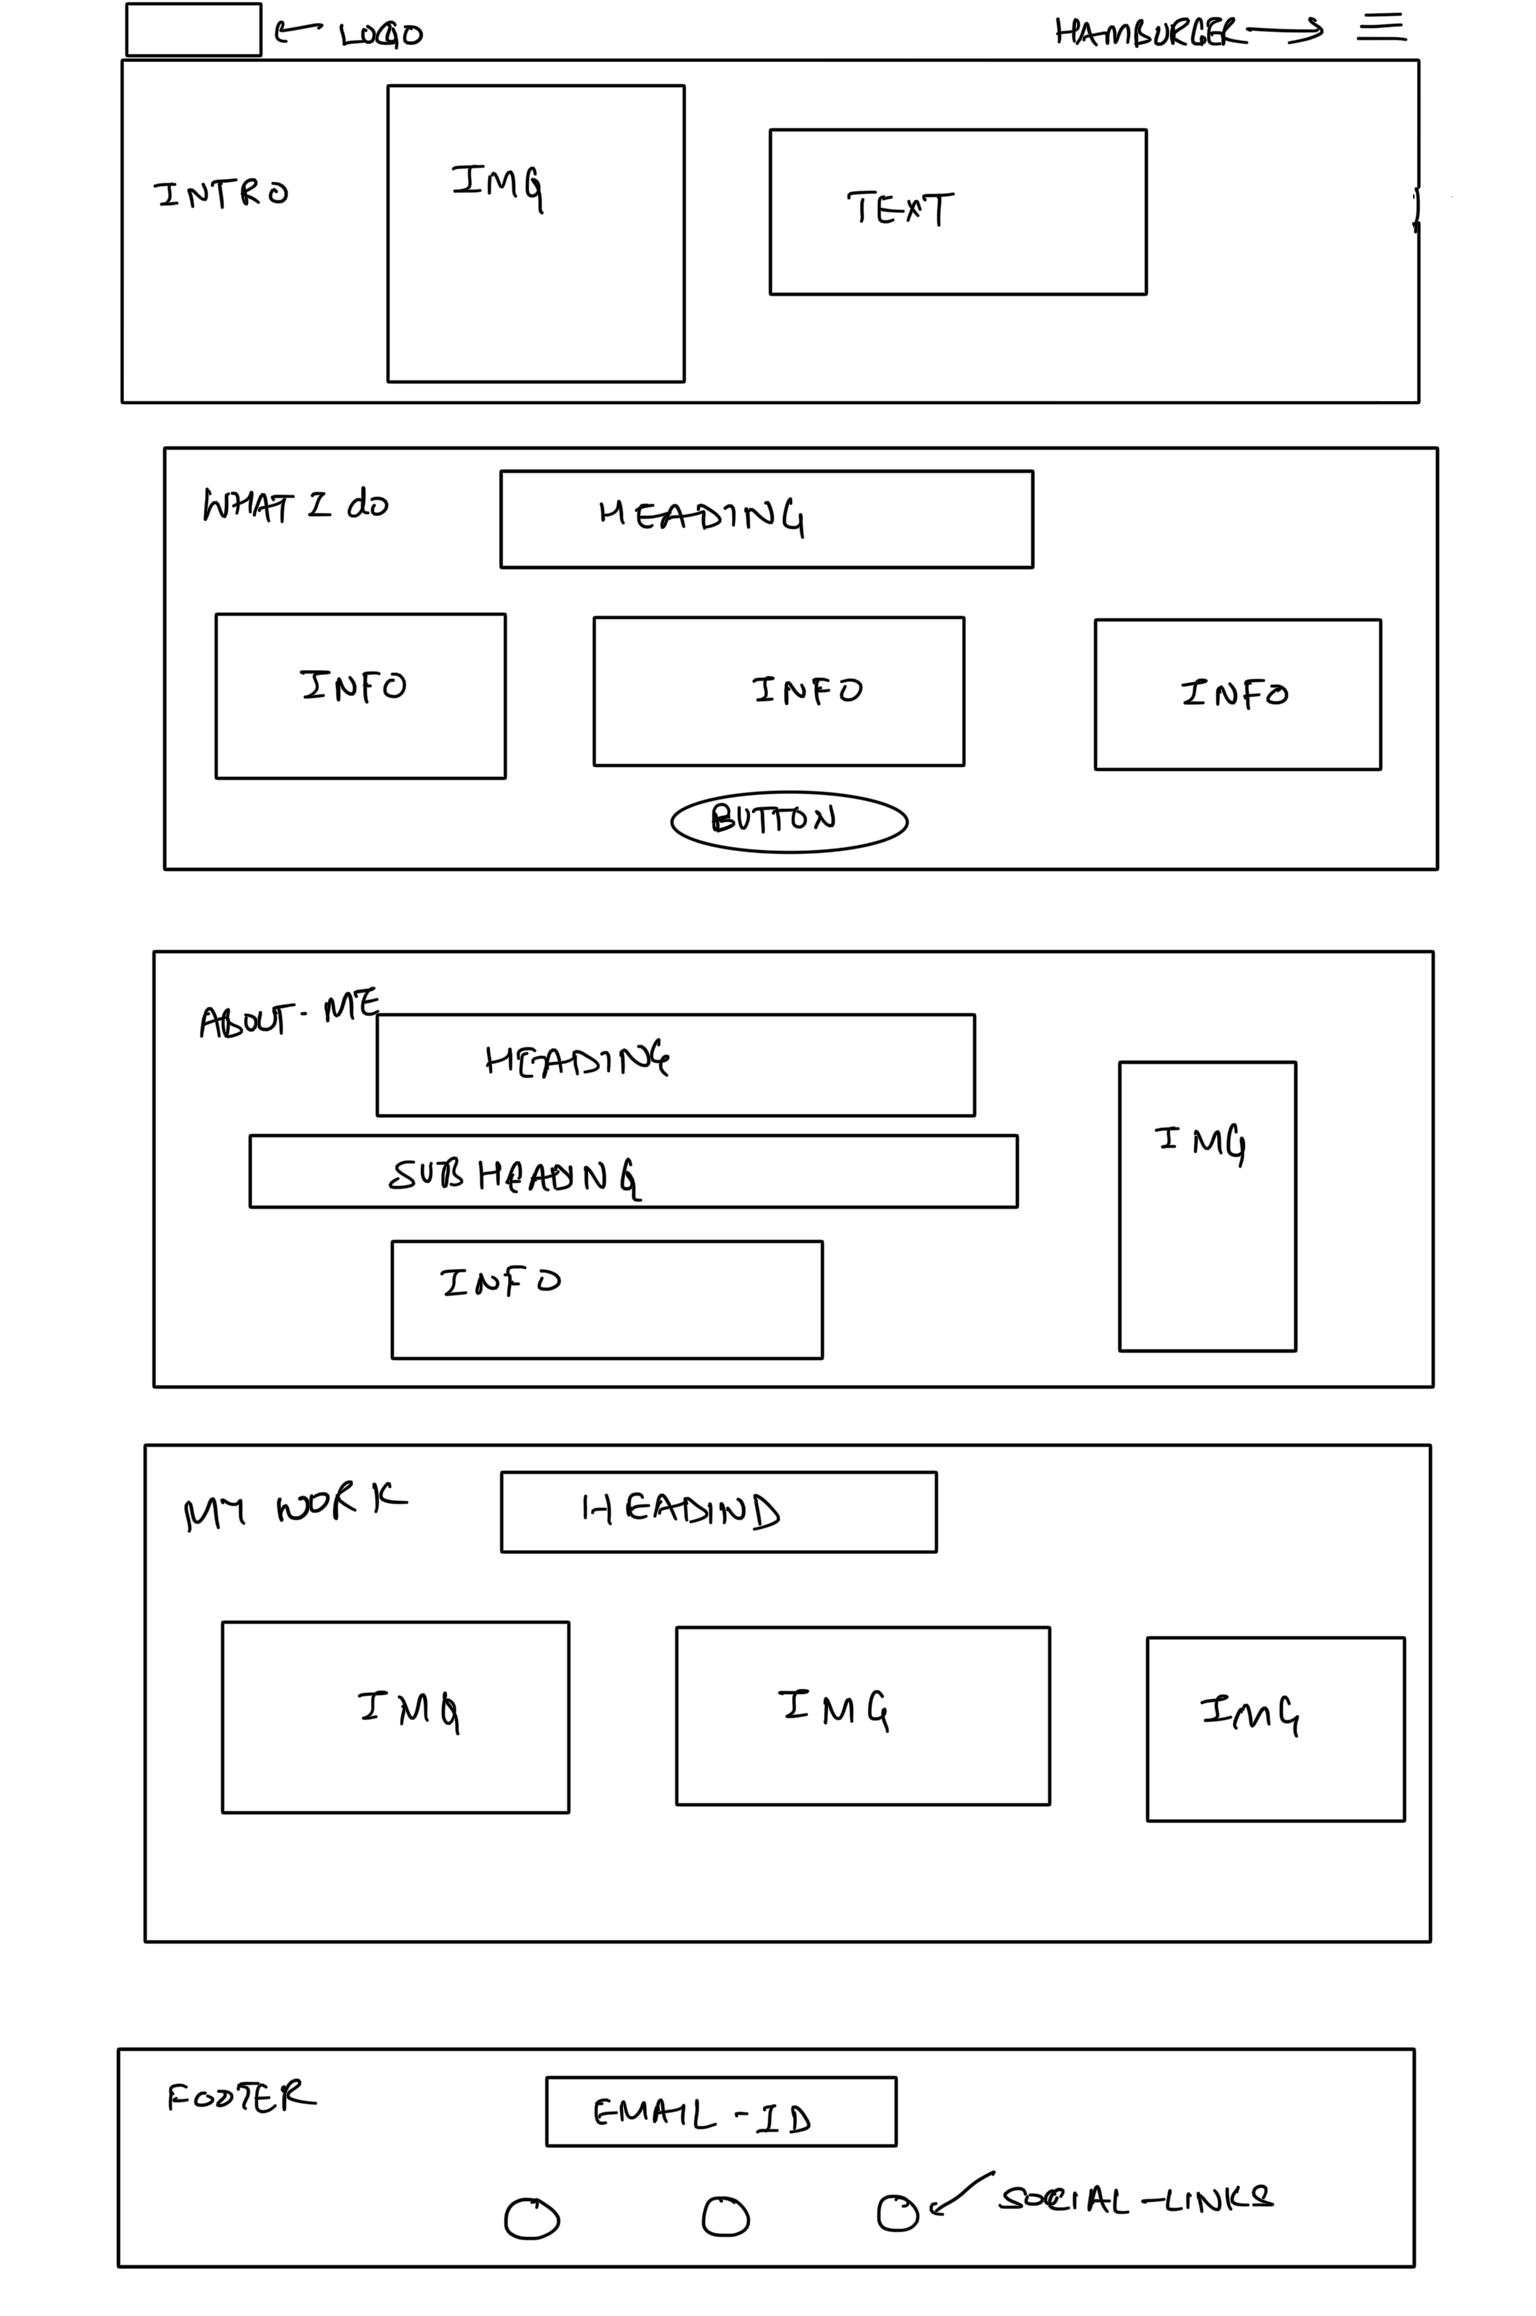 LOGO
HAMBURGER
INTRO
IMG
TEXT
WHAT I do
HEADING
INFO
INFO
INFO
BUTTON
ABOUT - ME
HEADING
SUB HEADING
INFO
IMG
MY WORK
HEADIND
IMG
IMG
IMG
FOOTER
EMAIL - ID
SOCIAL - LINKS